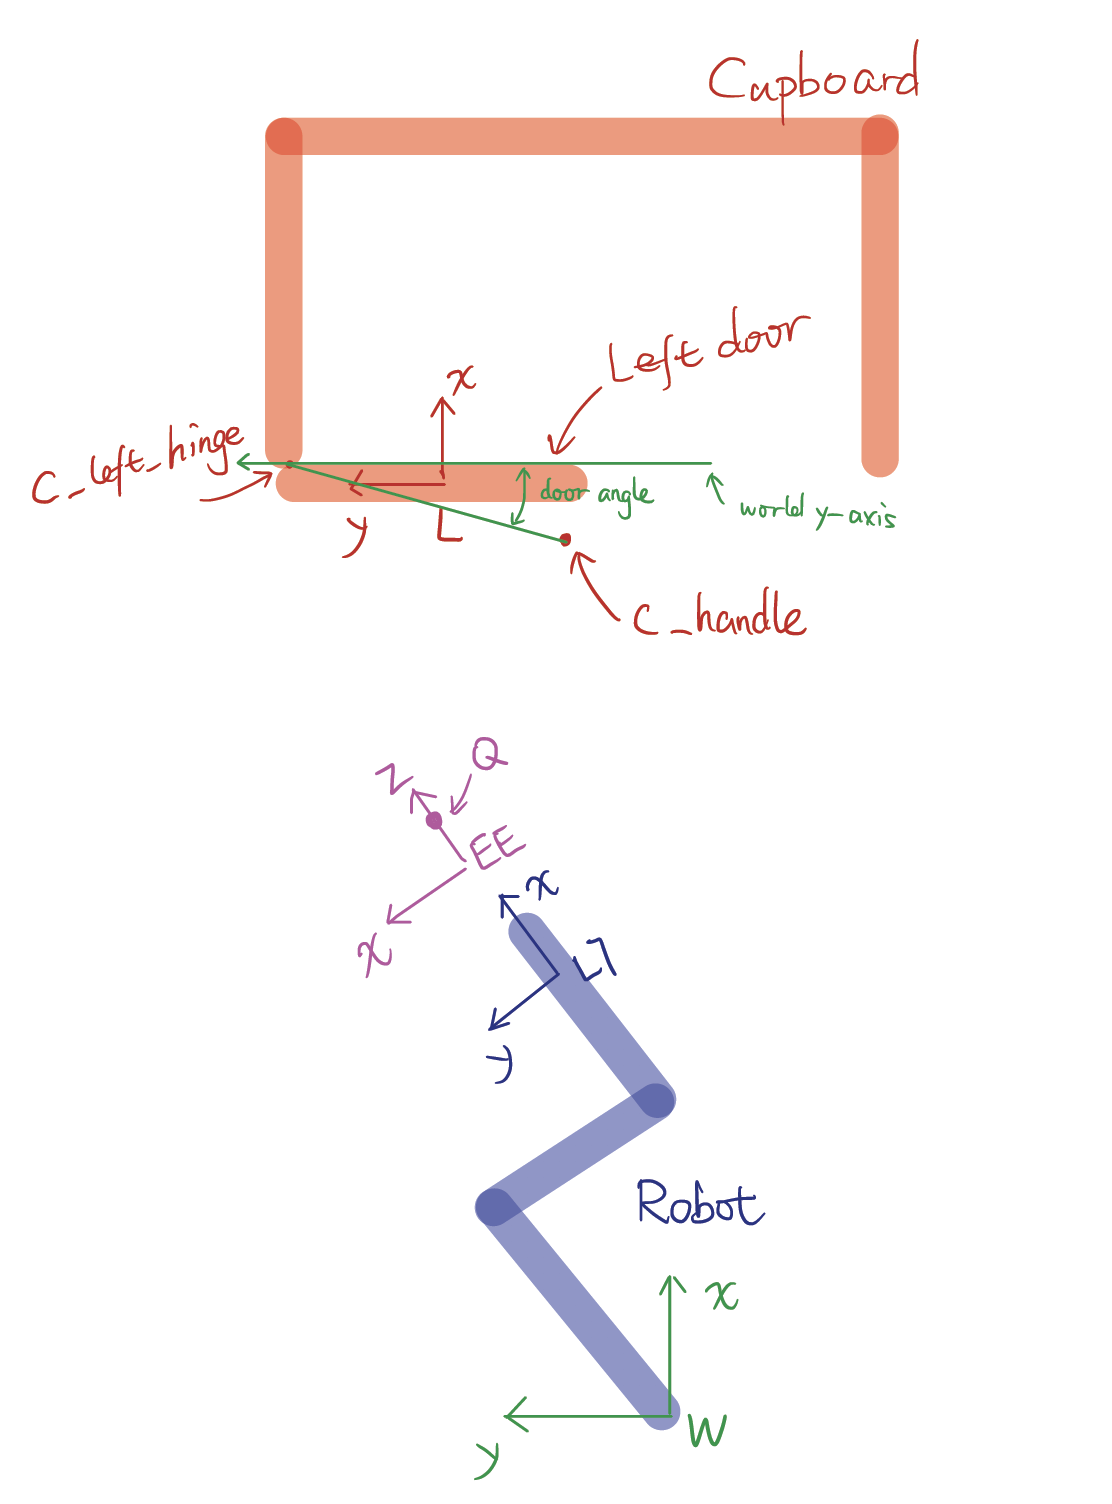 Cupboard
Left door
x
C_left_hinge
door angle
world y-axis
y
L
C_handle
Q
z
EE
x
x
L7
y
Robot
x
W
y